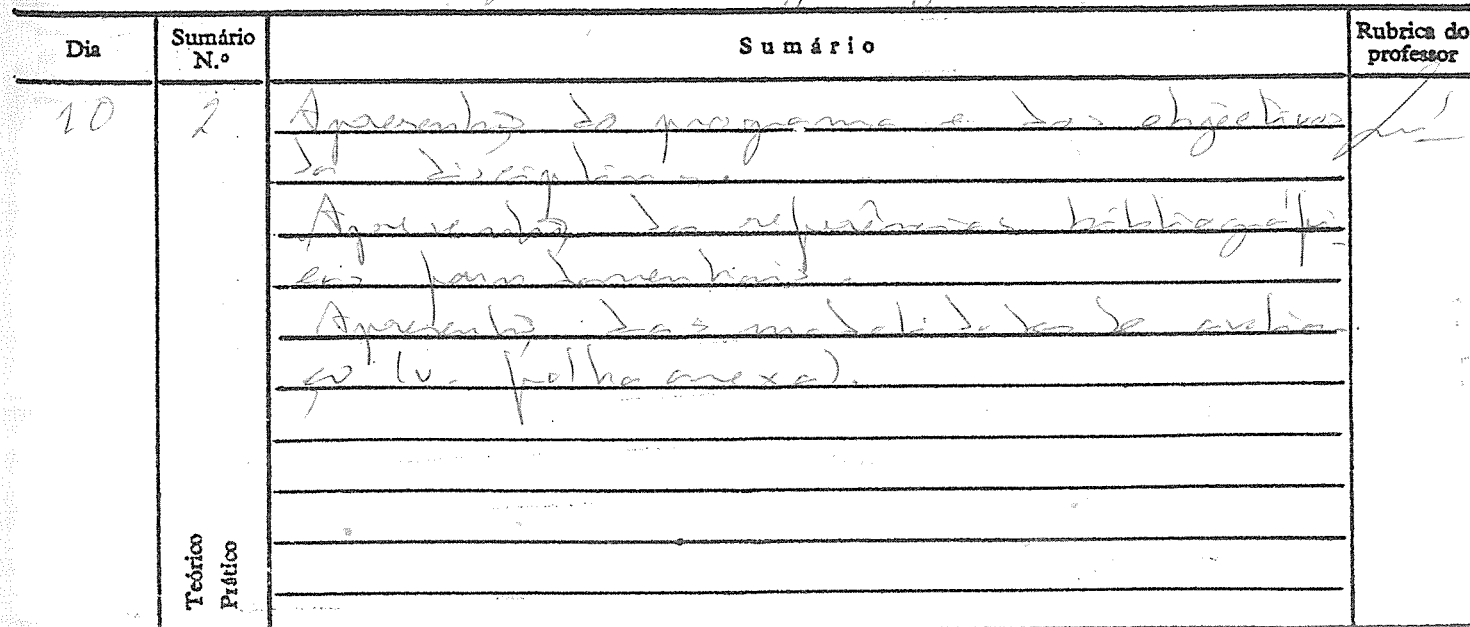 Dia
Sumário
N.º
Sumário
Rubrica do
professor
10
2
Apresentação do programa e dos objectivos
da disciplina.
Apresentação das referências bibliográfi-
cas fundamentais.
Apresentação das modalidades de avalia-
ção (v. folha anexa).
Teórico
Prático